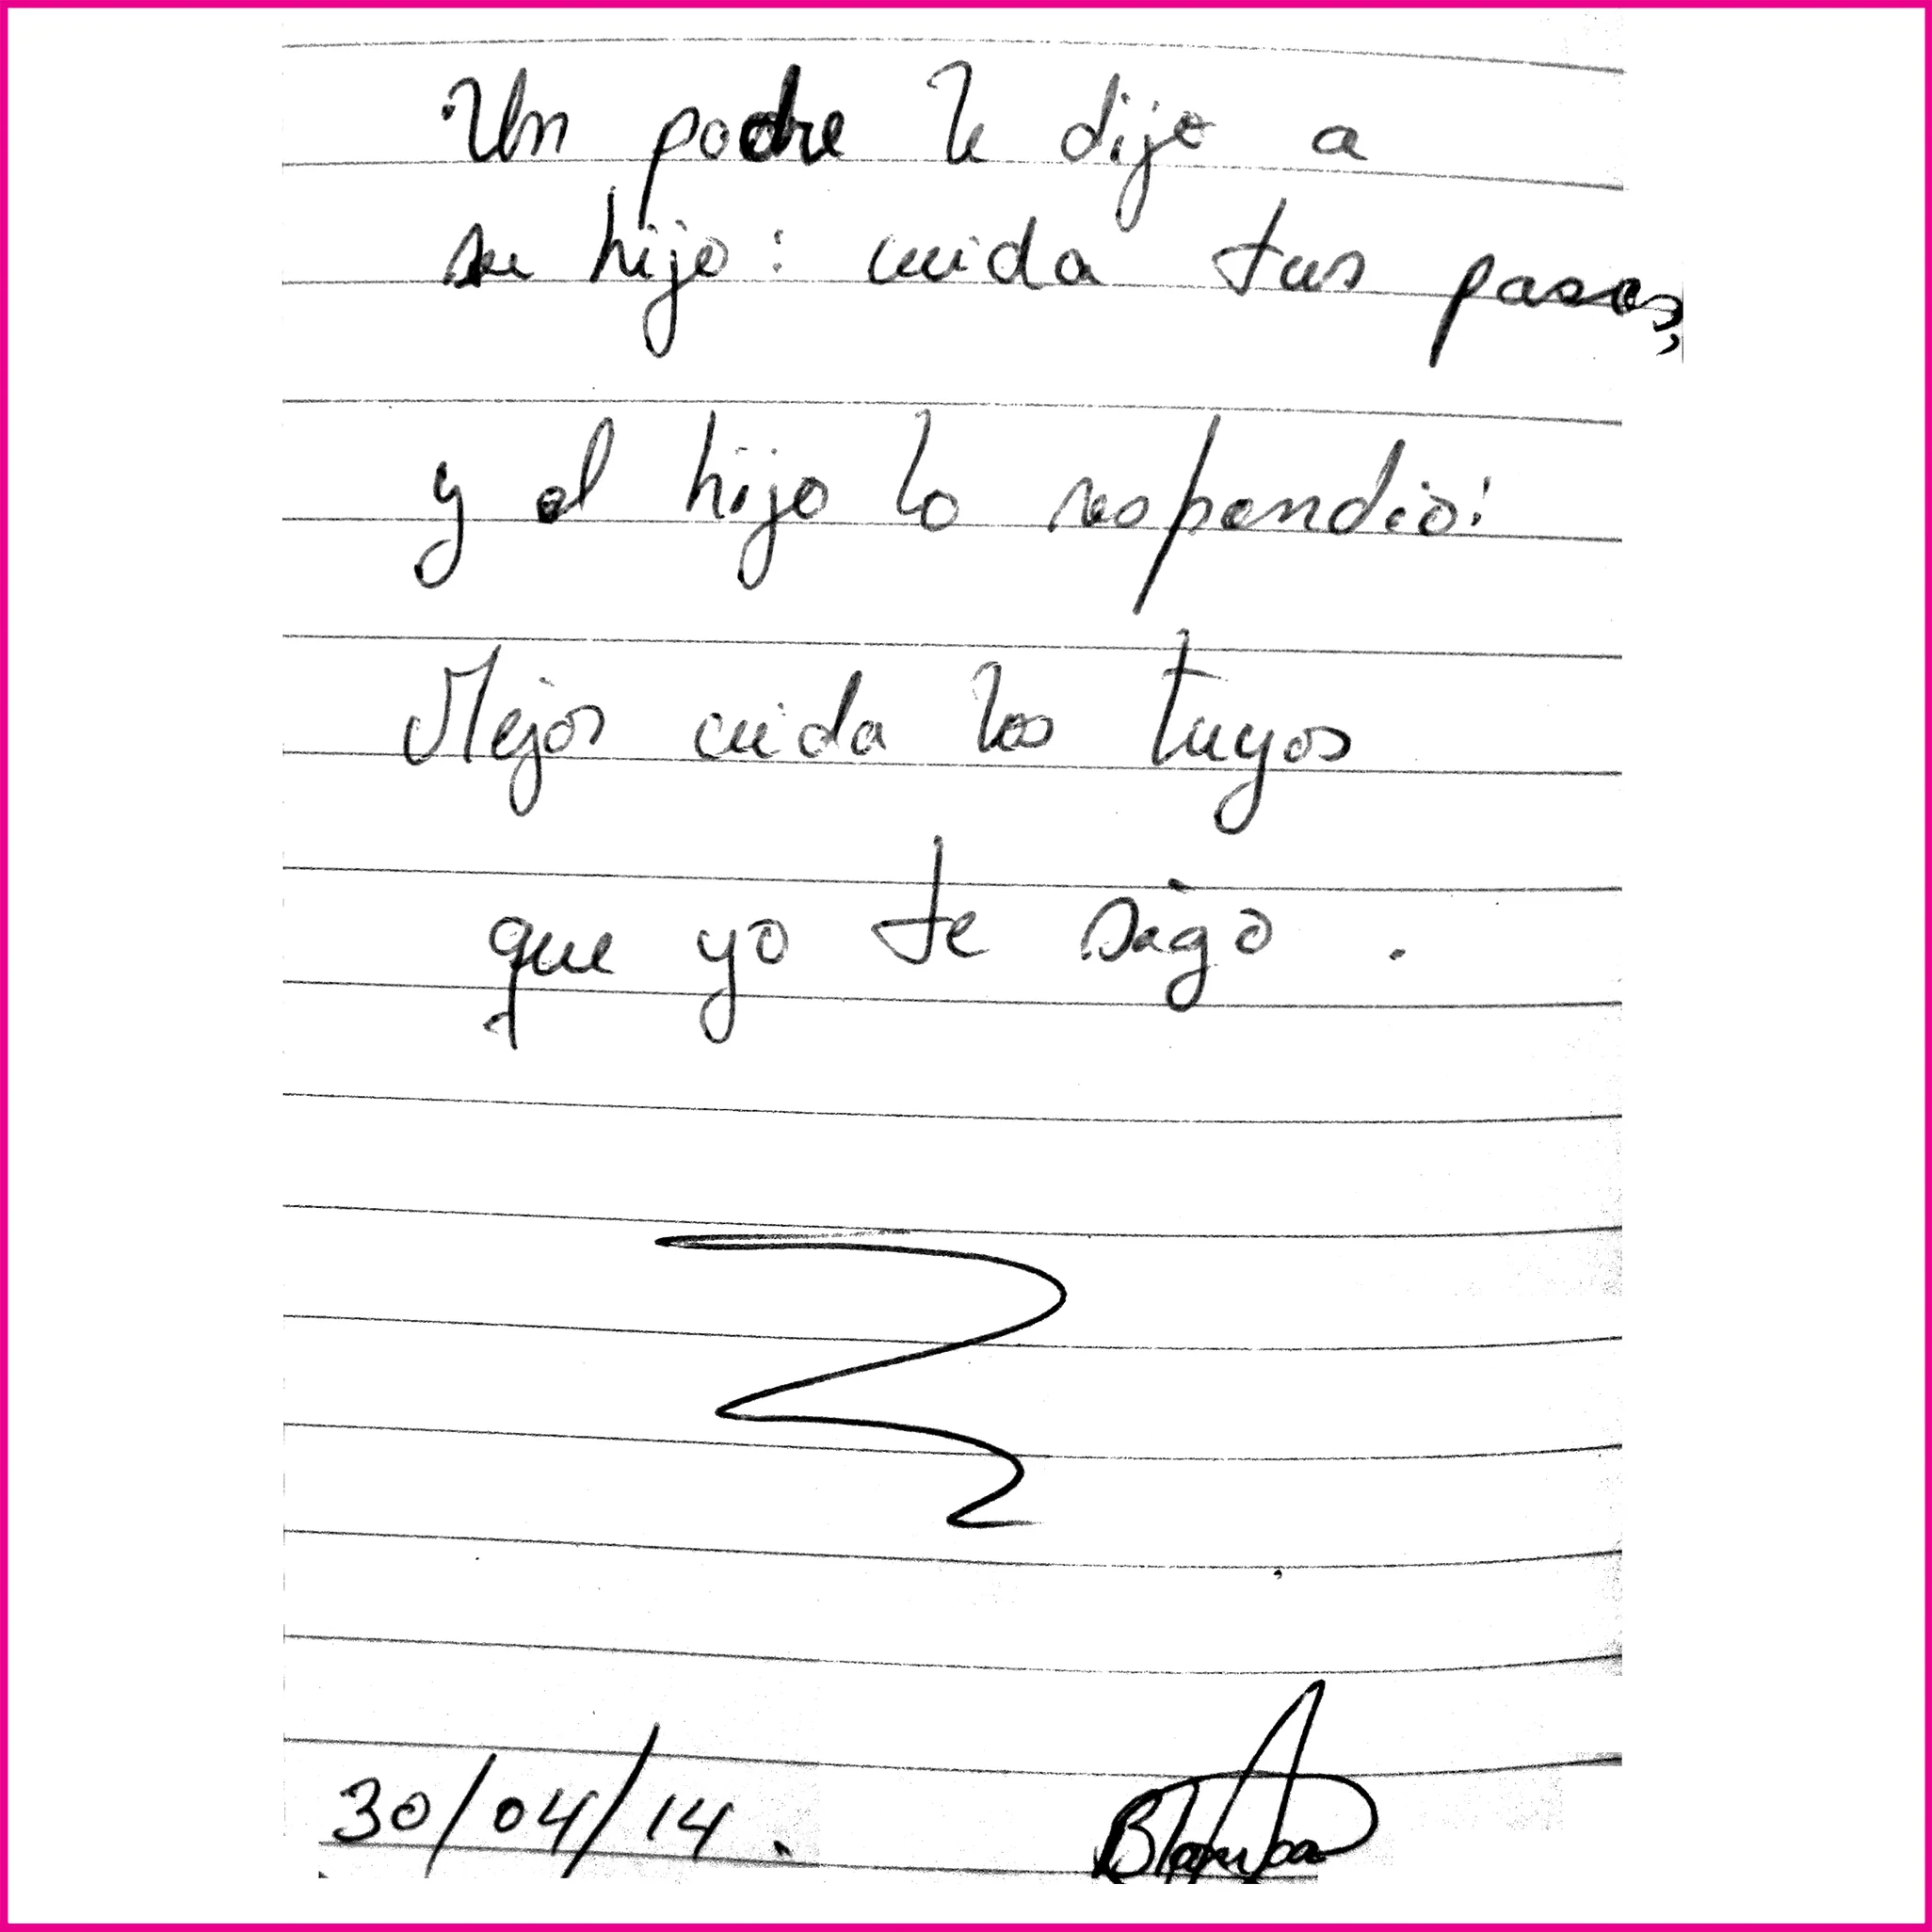 Un padre le dijo a
su hijo: cuida tus pasos,
y el hijo lo respondió:
Mejor cuida los tuyos
que yo te sigo.
30/04/14.